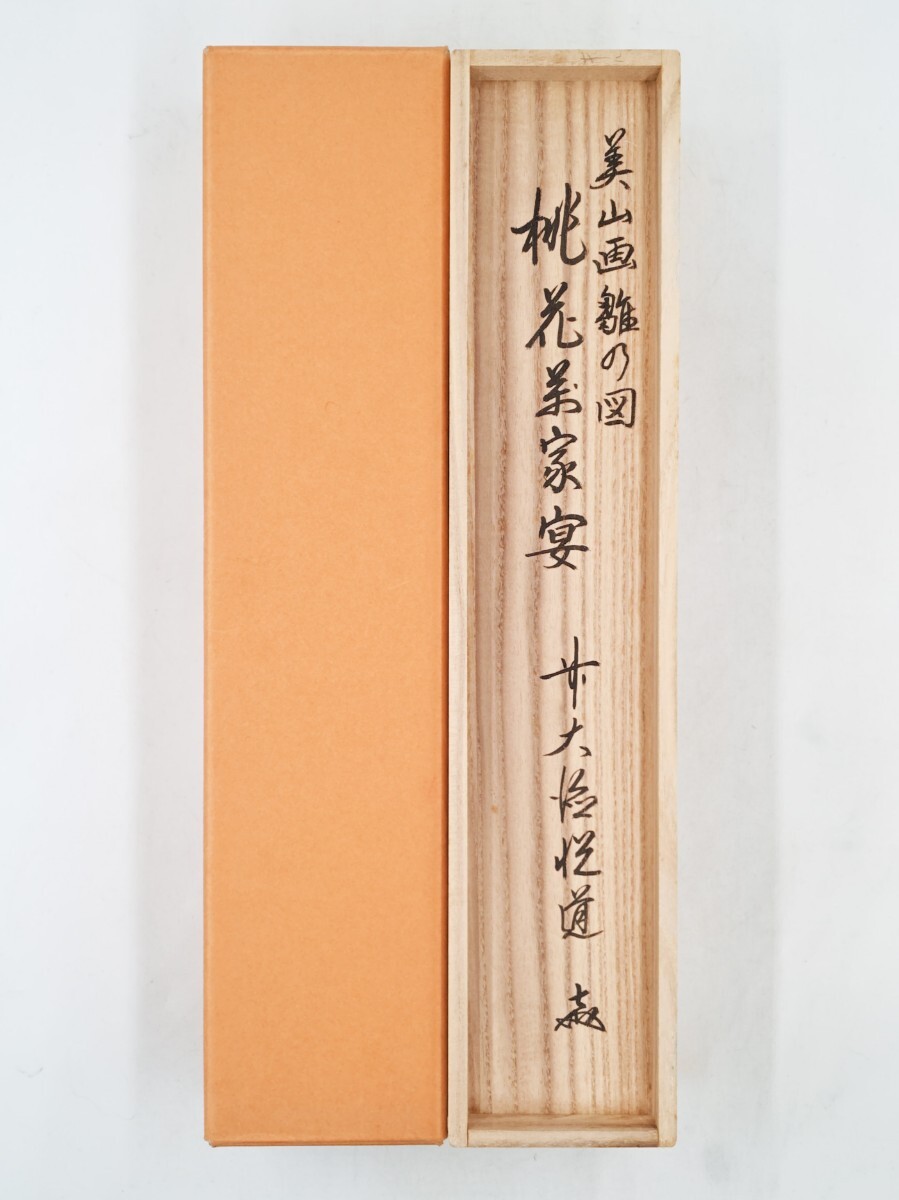 美山画雛の図
桃花萬家宴
大徳悦道